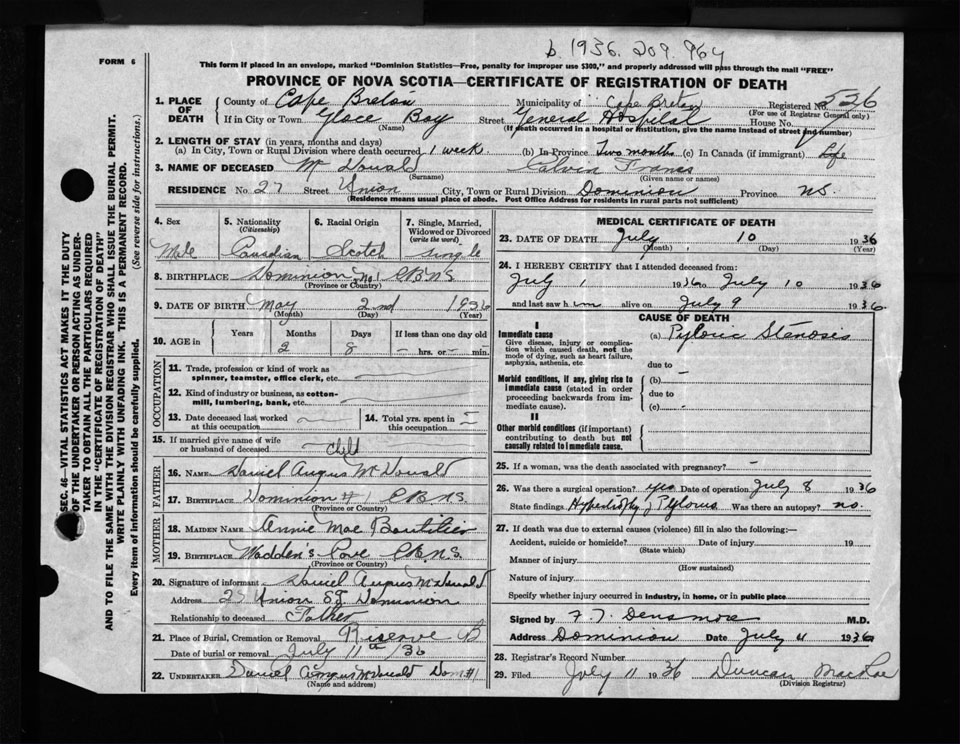 b 1936. 209 964
FORM 6
This form if placed in an envelope, marked "Dominion Statistics—Free, penalty for improper use $300," and properly addressed will pass through the mail "FREE"
PROVINCE OF NOVA SCOTIA—CERTIFICATE OF REGISTRATION OF DEATH
1. PLACE OF DEATH County of Cape Breton Municipality of Cape Breton Registered No 536
(For use of Registrar General only)
If in City or Town Glace Bay Street General Hospital House No.
(Name) (If death occurred in a hospital or institution, give the name instead of street and number)
2. LENGTH OF STAY (in years, months and days)
(a) In City, Town or Rural Division where death occurred 1 week. (b) In Province Two months (c) In Canada (if immigrant) Life
3. NAME OF DECEASED McDonald Calvin Francis
(Surname) (Given name or names)
RESIDENCE No. 27 Street Union City, Town or Rural Division Dominion Province NS.
(Residence means usual place of abode. Post Office Address for residents in rural parts not sufficient)
4. Sex Male
5. Nationality (Citizenship) Canadian
6. Racial Origin Scotch
7. Single, Married, Widowed or Divorced (write the word) Single
8. BIRTHPLACE Dominion No 1 C.B.N.S
(Province or Country)
9. DATE OF BIRTH May 2nd 1936
(Month) (Day) (Year)
10. AGE in Years Months Days If less than one day old
2 8 – hrs. or – min.
OCCUPATION
11. Trade, profession or kind of work as spinner, teamster, office clerk, etc.
12. Kind of industry or business, as cotton-mill, lumbering, bank, etc.
13. Date deceased last worked at this occupation
14. Total yrs. spent in this occupation
15. If married give name of wife or husband of deceased child
FATHER
16. NAME Daniel Angus McDonald
17. BIRTHPLACE Dominion # 1 C.B.N.S.
(Province or Country)
MOTHER
18. MAIDEN NAME Annie Mae Boutilier
19. BIRTHPLACE Wadden's Cove C.B.N.S.
(Province or Country)
20. Signature of informant Daniel Angus McDonald
Address 27 Union St Dominion
Relationship to deceased Father
21. Place of Burial, Cremation or Removal Reserve
Date of burial or removal July 11th/36
22. UNDERTAKER Daniel Angus McDonald Dom#1
(Name and address)
MEDICAL CERTIFICATE OF DEATH
23. DATE OF DEATH July 10 1936
(Month) (Day) (Year)
24. I HEREBY CERTIFY that I attended deceased from:
July 1 1936 to July 10 1936
and last saw him alive on July 9 1936
CAUSE OF DEATH
I
Immediate cause (a) Pyloric Stenosis
Give disease, injury or complication which caused death, not the mode of dying, such as heart failure, asphyxia, asthenia, etc.
due to
Morbid conditions, if any, giving rise to immediate cause (stated in order proceeding backwards from immediate cause).
(b) –
due to
(c) –
II
Other morbid conditions (if important) contributing to death but not causally related to immediate cause.
25. If a woman, was the death associated with pregnancy? –
26. Was there a surgical operation? yes Date of operation July 8 1936
State findings Hypertrophy of Pylorus Was there an autopsy? no.
27. If death was due to external causes (violence) fill in also the following:—
Accident, suicide or homicide? Date of injury 19
(State which)
Manner of injury
(How sustained)
Nature of injury
Specify whether injury occurred in industry, in home, or in public place
Signed by F. T. Densmore M.D.
Address Dominion Date July 11 1936
28. Registrar's Record Number
29. Filed July 11 1936 Duncan MacRae
(Division Registrar)
SEC. 46—VITAL STATISTICS ACT MAKES IT THE DUTY
OF THE UNDERTAKER OR PERSON ACTING AS UNDER-
TAKER TO OBTAIN ALL THE PARTICULARS REQUIRED
IN THE "CERTIFICATE OF REGISTRATION OF DEATH"
AND TO FILE THE SAME WITH THE DIVISION REGISTRAR WHO SHALL ISSUE THE BURIAL PERMIT.
WRITE PLAINLY WITH UNFADING INK. THIS IS A PERMANENT RECORD.
Every item of information should be carefully supplied. (See reverse side for instructions.)